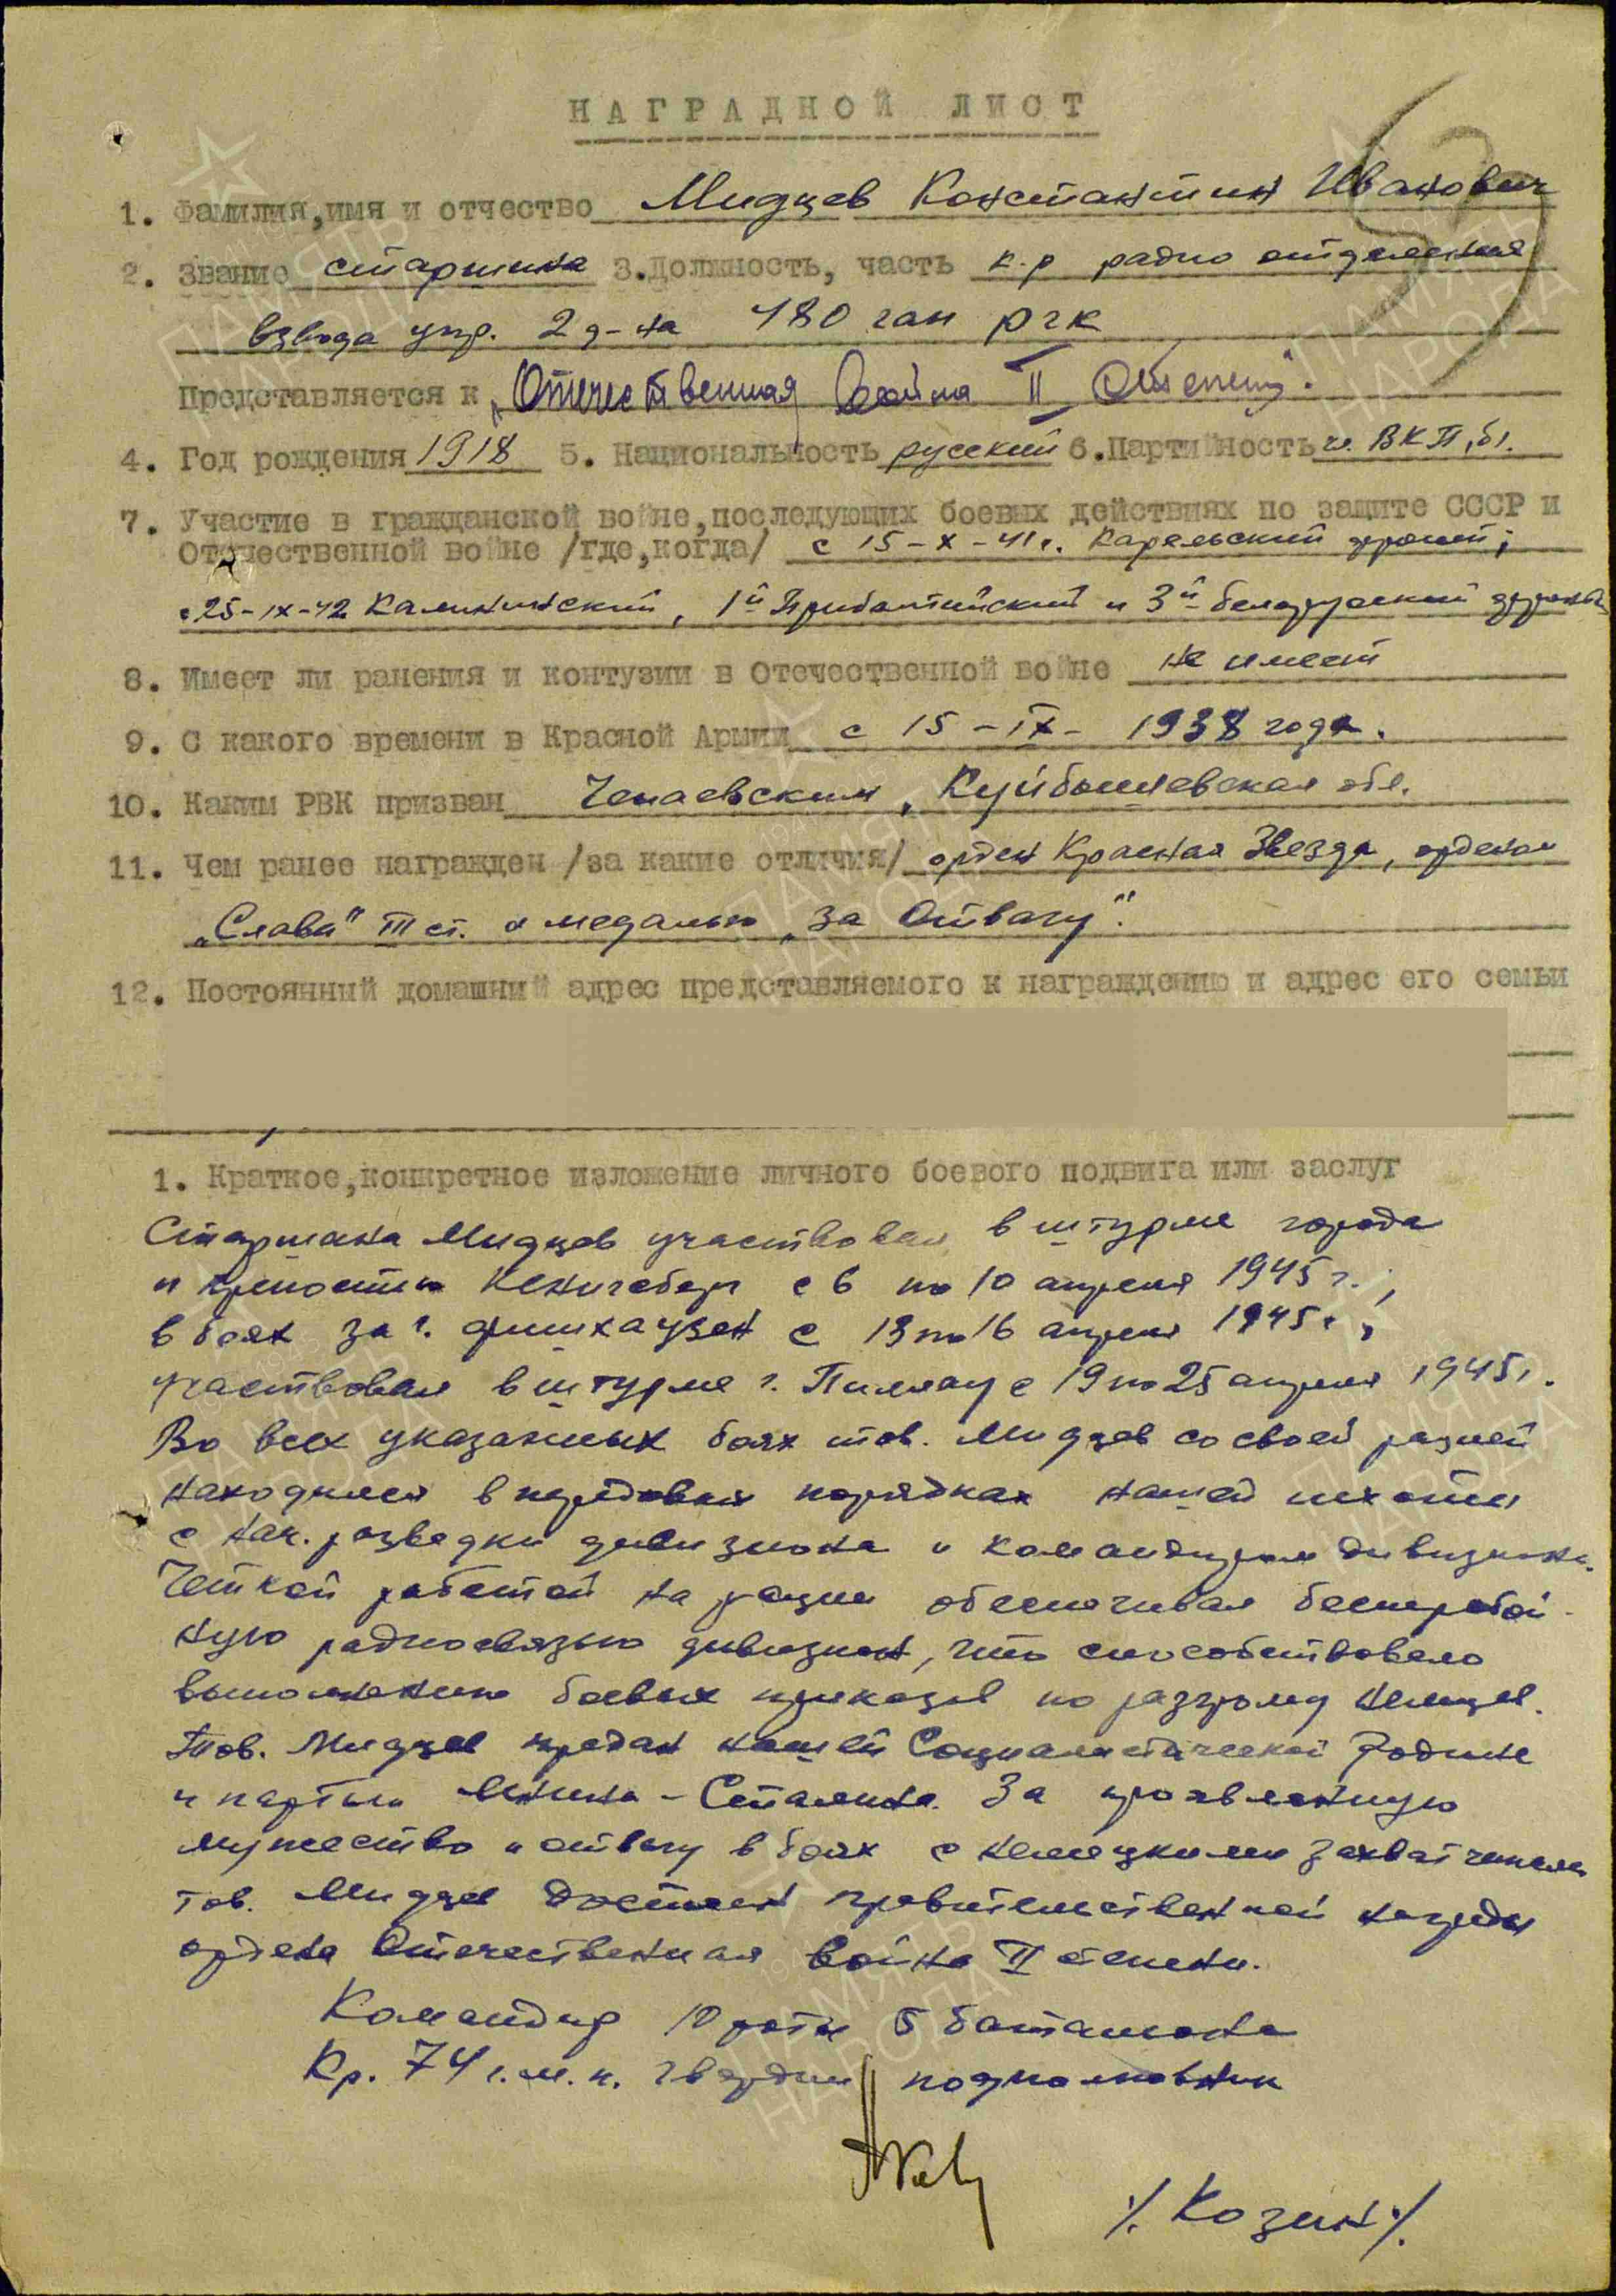 НАГРАДНОЙ ЛИСТ
1. Фамилия,имя и отчество Мидцев Константин Иванович
2. Звание старшина 3.Должность, часть к-р радио отделения
взвода упр. 2 д-на 480 гап ргк
Представляется к „Отечественная Война II Степени".
4. Год рождения 1918 5. Национальность русский 6.Партийность чл. ВКП(б).
7. Участие в гражданской войне,последующих боевых действиях по защите СССР и
Отечественной войне /где,когда/ с 15-X-41г. Карельский фронт;
с 25-IX-42 Калининский, 1й Прибалтийский и 3й белорусский фронты
8. Имеет ли ранения и контузии в Отечественной войне не имеет
9. С какого времени в Красной Армии с 15-IX-1938 года.
10. Каким РВК призван Чапаевским, Куйбышевская обл.
11. Чем ранее награжден /за какие отличия/ орден Красная Звезда, орденом
„Слава" III ст. и медалью „За Отвагу".
12. Постоянный домашний адрес представляемого к награждению и адрес его семьи
1. Краткое,конкретное изложение личного боевого подвига или заслуг
Старшина Мидцев участвовал в штурме города
и крепости Кенигсберг с 6 по 10 апреля 1945 г.,
в боях за г. Фишхаузен с 13 по 16 апреля 1945г.,
участвовал в штурме г. Пиллау с 19 по 25 апреля 1945г.
Во всех указанных боях тов. Мидцев со своей рацией
находился в передовых порядках нашей пехоты
с нач. разведки дивизиона и командиром дивизиона.
Четкой работой на рации обеспечивал бесперебой-
ную радиосвязью дивизион, что способствовало
выполнению боевых приказов по разгрому немцев.
Тов. Мидцев предан нашей Социалистической Родине
и партии Ленина-Сталина. За проявленную
мужество и отвагу в боях с немецкими захватчиками
тов. Мидцев достоин правительственной награды
ордена Отечественная война II степени.
Командир 10 роты 5 батальона
Кр. 74 гвардии подполковник
/. Козин ./